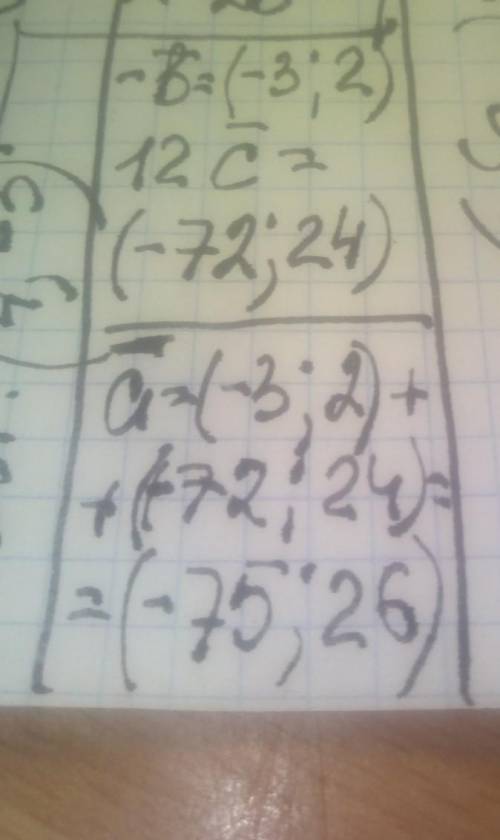 -b̅=(-3; 2)
12 c̅ =
(-72; 24)
a̅=(-3; 2) +
+ (-72; 24)=
=(-75; 26)